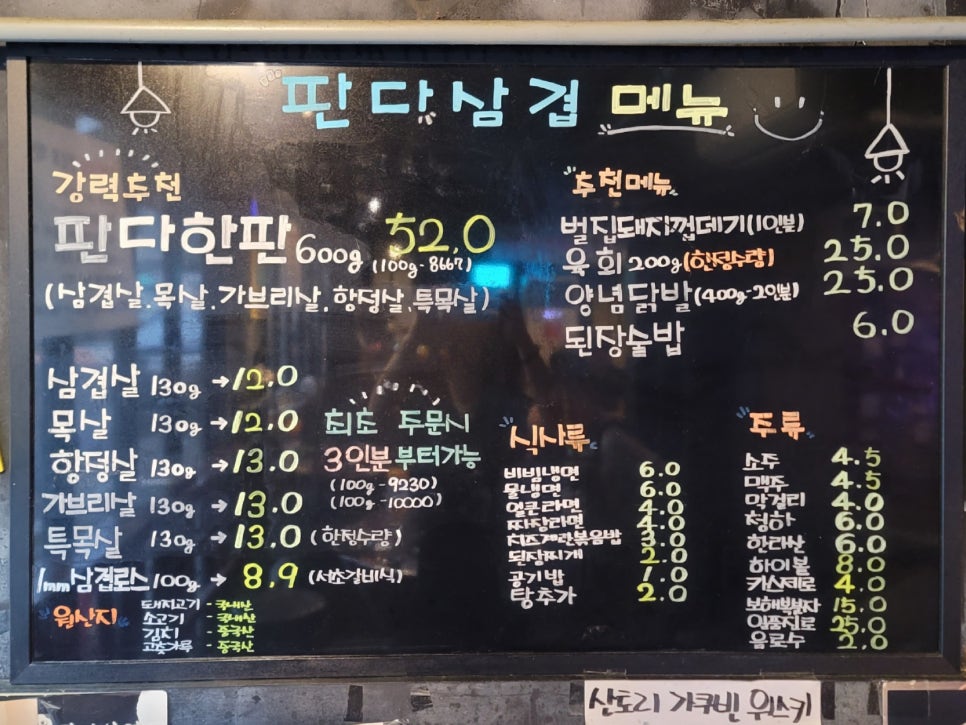 판다삼겹 메뉴
강력추천
판다한판 600g 52.0
(100g-8667)
(삼겹살.목살.가브리살.항정살.특목살)
삼겹살 130g →12.0
목살 130g →12.0
항정살 130g →13.0
가브리살 130g →13.0
특목살 130g →13.0 (한정수량)
1mm삼겹로스 100g → 8.9 (서초갈비식)
최초 주문시
3인분부터가능
(100g-9230)
(100g-10000)
원산지
돼지고기 - 국내산
소고기 - 국내산
김치 - 중국산
고춧가루 - 중국산
추천메뉴
벌집돼지껍데기(1인분) 7.0
육회 200g(한정수량) 25.0
양념닭발(400g-2인분) 25.0
된장술밥 6.0
식사류
비빔냉면 6.0
물냉면 6.0
얼큰라면 4.0
짜장라면 4.0
치즈계란볶음밥 3.0
된장찌개 2.0
공기밥 1.0
탕추가 2.0
주류
소주 4.5
맥주 4.5
막걸리 4.0
청하 6.0
한라산 6.0
하이볼 8.0
카스제로 4.0
보해복분자 15.0
일품진로 25.0
음료수 2.0
산토리 가쿠빈 위스키